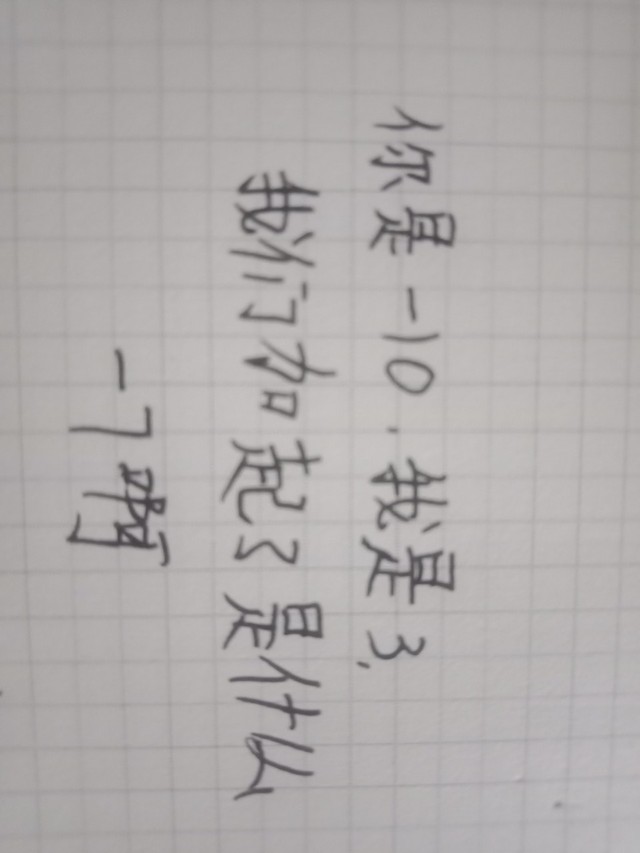 你是-10.我是3.
我们加起了是什么
-7啊